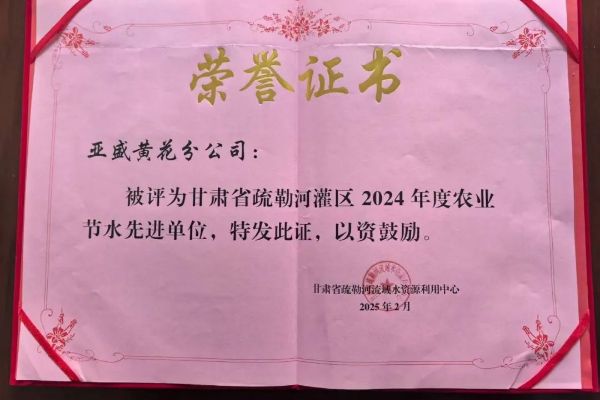 荣誉证书
亚盛黄花分公司：
被评为甘肃省疏勒河灌区 2024 年度农业
节水先进单位，特发此证，以资鼓励。
甘肃省疏勒河流域水资源利用中心
2025 年 2 月